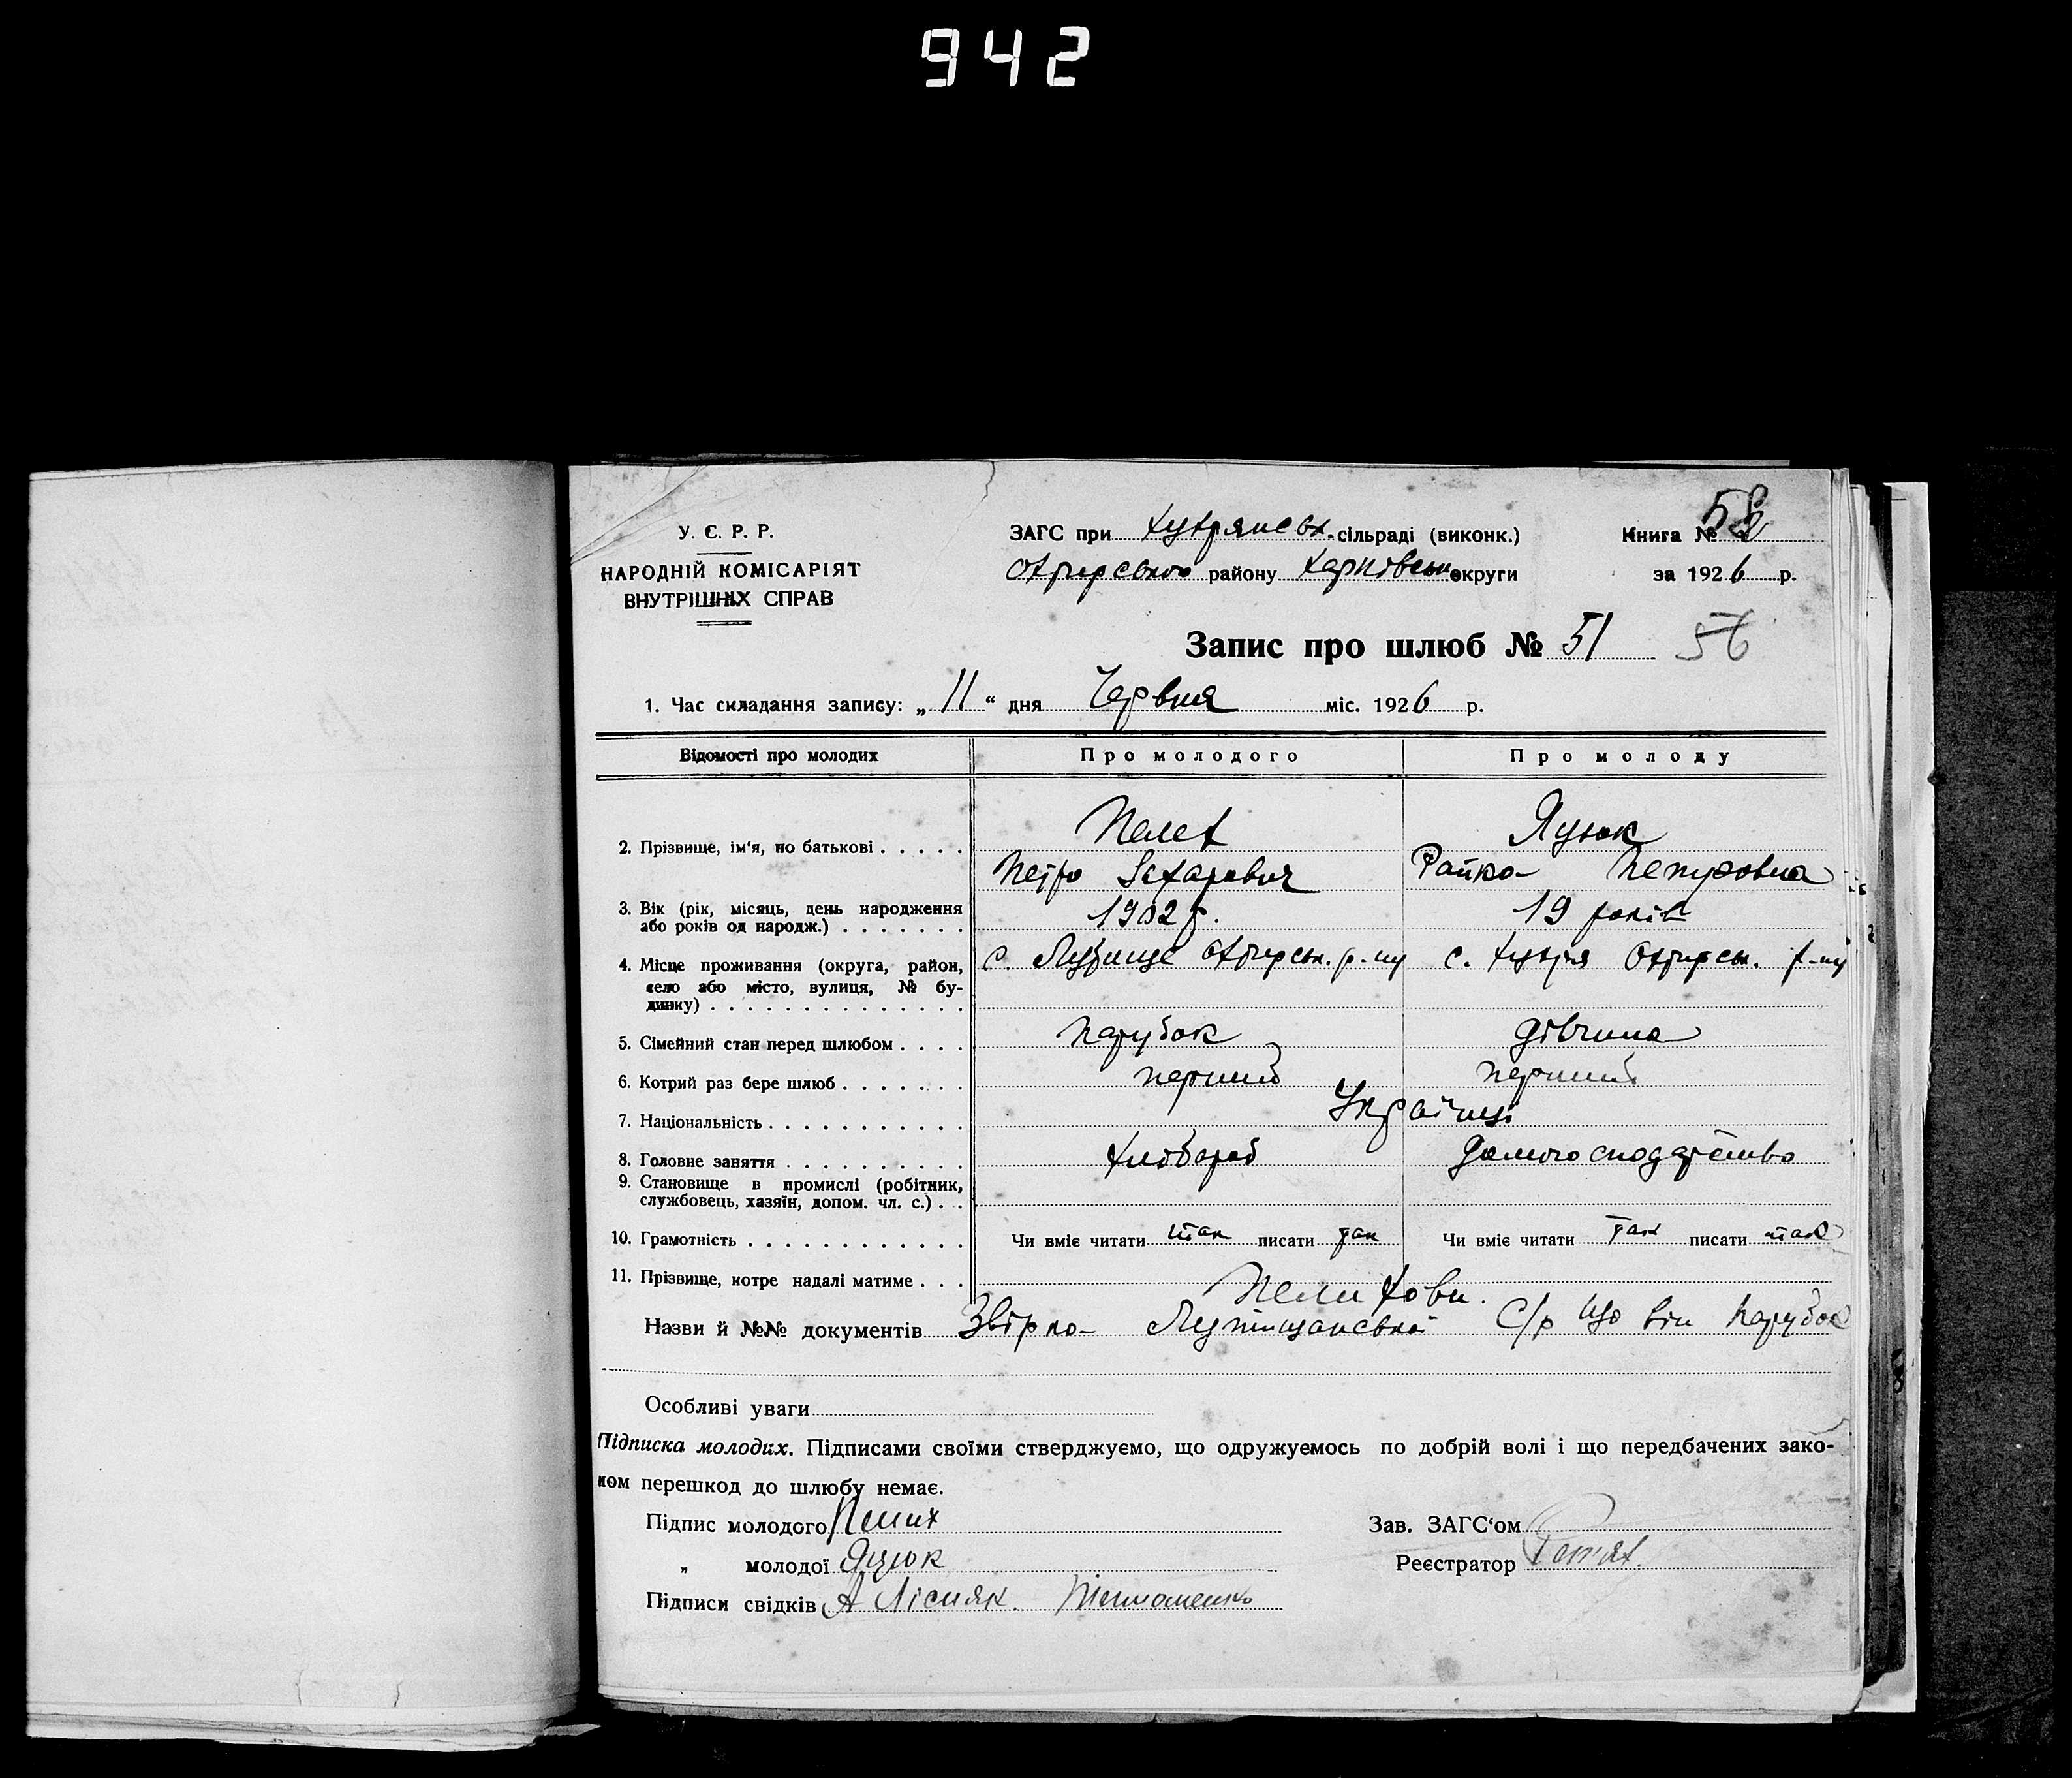 942
У. Є. Р. Р.
НАРОДНІЙ КОМІСАРІЯТ
ВНУТРІШНІХ СПРАВ
ЗАГС при Хухрянськ. сільраді (виконк.)
Охтирського району Харківськ округи
Книга №
за 1926 р.
Запис про шлюб № 51 56
1. Час складання запису: „ 11 “ дня Червня міс. 1926 р.
Відомості про молодих Про молодого Про молоду
2. Прізвище, ім‘я, по батькові . . . . .
Пелех
Петро Захарович
Яцюк
Петровна
3. Вік (рік, місяць, день народження
або років од народж.) . . . . . . .
1902 р.
19 років
4. Місце проживання (округа, район,
село або місто, вулиця, № бу-
динку) . . . . . . . . . . . . . .
с. Охтирськ. р-ну
с. Хухря Охтирськ. р-ну
5. Сімейний стан перед шлюбом . . . . Парубок дівчина
6. Котрий раз бере шлюб . . . . . . . перший перший
7. Національність . . . . . . . . . . . Українці
8. Головне заняття . . . . . . . . . . Хлібороб домогосподарство
9. Становище в промислі (робітник,
службовець, хазяїн, допом. чл. с.) . .
10. Грамотність . . . . . . . . . . . . Чи вміє читати так писати так Чи вміє читати так писати так
11. Прізвище, котре надалі матиме . . .
Назви й №№ документів С/р що він парубок
Особливі уваги
Підписка молодих. Підписами своїми стверджуємо, що одружуємось по добрій волі і що передбачених зако-
ном перешкод до шлюбу немає.
Підпис молодого Пелих
„ молодої Яцюк
Підписи свідків А Лісняк.
Зав. ЗАГС‘ом
Реєстратор